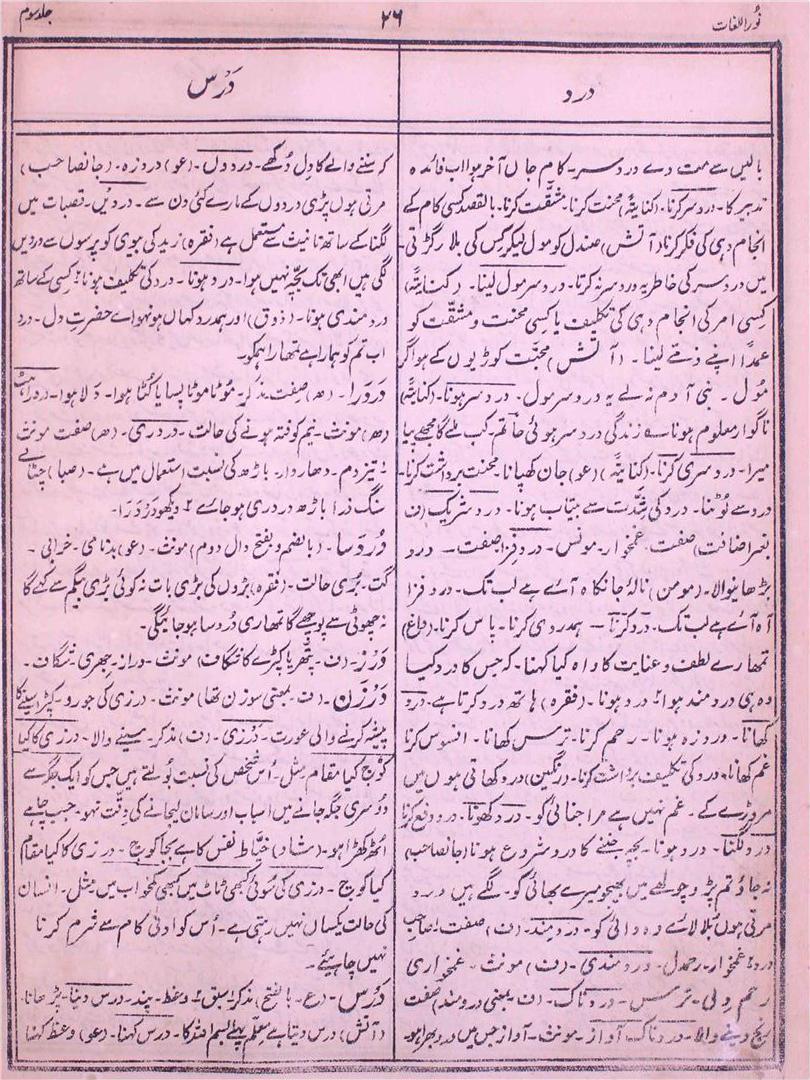 نُوراللغات
۲۶
جلد سوم
درد
دَرْس
بالیں سے مت دے دردسر۔ کام جاں آخر ہوا اب فائدہ
تدبیر کا۔ دردسر کرنا۔ (کنایتہً) محنت کرنا۔ مشقّت کرنا۔ بالقصد کسی کام کے
انجام دہی کی فکر کرنا (آتش) صندل کو مول لیکر کس کی بلا رگڑتی۔
میں دردسر کی خاطر یہ دردسر نہ کرتا۔ دردسر مول لینا۔ (کنایتہً)
کسی امر کی انجام دہی کی تکلیف یا کسی محنت و مشقّت کو
عمداً اپنے ذمّے لینا۔ (آتش) محبّت کوڑیوں کے ہو اگر
مُول۔ بنی آدم نہ لے یہ دردسر مول۔ دردسر ہونا۔ (کنایتہً)
ناگوار معلوم ہونا ؎ زندگی دردسر ہوئی حاتم کب ملے گا مجھے پیا
میرا۔ دردسری کرنا۔ (کنایتہً) (عو) جان کھپانا۔ محنت برداشت کرنا۔
درد سے لُوٹنا۔ درد کی شدّت سے بیتاب ہونا۔ درد شریک (ف
بغیر اضافت) صفت۔ غمخوار۔ مونس۔ درد فزا صفت۔ درد
بڑھانیوالا۔ (مومن) نالۂ جانکاہ آئے ہے لب تک۔ درد فزا
آہ آئے ہے لب تک۔ درد کرنا۔ ہمدردی کرنا۔ پاس کرنا۔ (داغ)
تمھارے لطف و عنایت کا واہ کیا کہنا۔ کہ جس کا درد کیا
وہ ہی دردمند ہوا ۲ درد ہونا۔ (فقرہ) ہاتھ درد کرتا ہے۔ درد
کھانا۔ درد زہ ہونا۔ رحم کرنا۔ ترس کھانا۔ افسوس کرنا
غم کھانا ۲ درد کی تکلیف برداشت کرنا۔ (رنگین) درد کھاتی ہوں میں
مروڑے کے۔ غم نہیں ہے مرا جنائی کو۔ درد کھونا۔ درد دفع کرنا
درد لگنا۔ درد ہونا۔ بچہ جننے کا درد شروع ہونا (جانصاحب)
نہ جاؤ تم پڑو چولھے میں بھیجو میرے بھائی کو۔ لگے ہیں درد
مرتی ہوں بُلا لائے وہ دائی کو۔ دردمند۔ (ف) صفت ۱ صاحب
درد ۲ غمخوار۔ رحمدل۔ دردمندی۔ (ف) مونث۔ غمخواری
رحم دلی۔ ترس۔ دردناک۔ (ف بمعنی دردمند) صفت
رنج دینے والا۔ دردناک آواز۔ مونث۔ آواز جس میں درد بھرا ہو۔
کہ سننے والے کا دل دُکھے۔ دردوں۔ (عو) دردِ زہ۔ (جانصاحب)
مرتی ہوں پڑی دردوں کے مارے کئی دن سے۔ دردیں۔ قصبات میں
لگنا کے ساتھ تانیث سے مستعمل ہے (فقرہ) زید کی بیوی کو پرسوں سے دردیں
لگی ہیں ابھی تک بچّہ نہیں ہوا۔ درد ہونا۔ درد کی تکلیف ہونا ۲ کسی کے ساتھ
دردمندی ہونا۔ (ذوق) اور ہمدرد کہاں ہو نہو اے حضرتِ دل۔ درد
اب تم کو ہمارا ہے تمھارا ہمکو۔
دَرْدَرا۔ (ھ) صفت مذکر۔ موٹا موٹا پسا یا کُٹا ہوا۔ دَلا ہوا۔ درداہٹ
(ھ) مونث۔ نیم کوفتہ ہونے کی حالت۔ دردری۔ (ھ) صفت مونث
۱ تیز دم۔ دھاردار۔ باڑھ کی نسبت استعمال میں ہے۔ (صبا) چٹائے
سنگ ذرا باڑھ دردری ہوجائے ۲ دیکھو دردَرا۔
دُرْدَسا۔ (بالضم و بفتح دال دوم) مونث۔ (عو) بدنامی۔ خرابی۔
گت۔ بُری حالت۔ (فقرہ) بڑوں کی بڑی بات نہ کوئی بڑی بیگم سے کہے گا
نہ چھوٹی سے پوچھے گا تمھاری دُردسا ہوجائیگی۔
دَرْز۔ (ف۔ پتّھر یا کپڑے کا شگاف) مونث۔ دراز۔ جھری۔ شگاف۔
دَرْزَن۔ (ف۔ بمعنی سوزن تھا) مونث۔ درزی کی جورو۔ کپڑا سینے کا
پیشہ کرنے والی عورت۔ دَرْزی۔ (ف) مذکر۔ سینے والا۔ درزی کا کیا
کوچ کیا مقام مثل۔ اُس شخص کی نسبت بولتے ہیں جس کو ایک جگہ سے
دوسری جگہ جانے میں اسباب اور سامان لیجانے کی دِقّت نہو۔ جب چاہے
اُٹھ کھڑا ہو۔ (شاد) خیّاط نفس کا ہے بجا کوچ۔ درزی کا کیا مقام
کیا کوچ۔ درزی کی سُوئی کبھی ٹاٹ میں کبھی کمخواب میں مثل۔ انسان
کی حالت یکساں نہیں رہتی ہے۔ اُس کو ادنیٰ کام سے شرم کرنا
نہیں چاہیئے۔
دَرْس۔ (ع۔ بالفتح) مذکر ۱ سبق ۲ وعظ۔ پند۔ درس دینا۔ پڑھانا۔
(آتش) درس دیتا ہے معلّم پہلے بسم اللہ کا۔ درس کہنا۔ (عو) وعظ کہنا